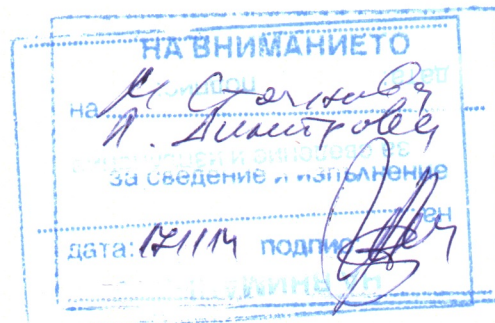 НА ВНИМАНИЕТО
на М. Стоянова
А. Димитрова
за сведение и изпълнение
дата: 17.11.14 подпис